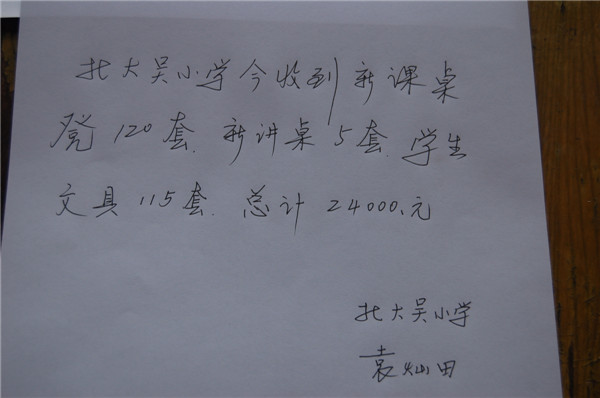 北大吴小学今收到新课桌
凳120套.新讲桌5套.学生
文具115套.总计24000.元
北大吴小学
袁灿田